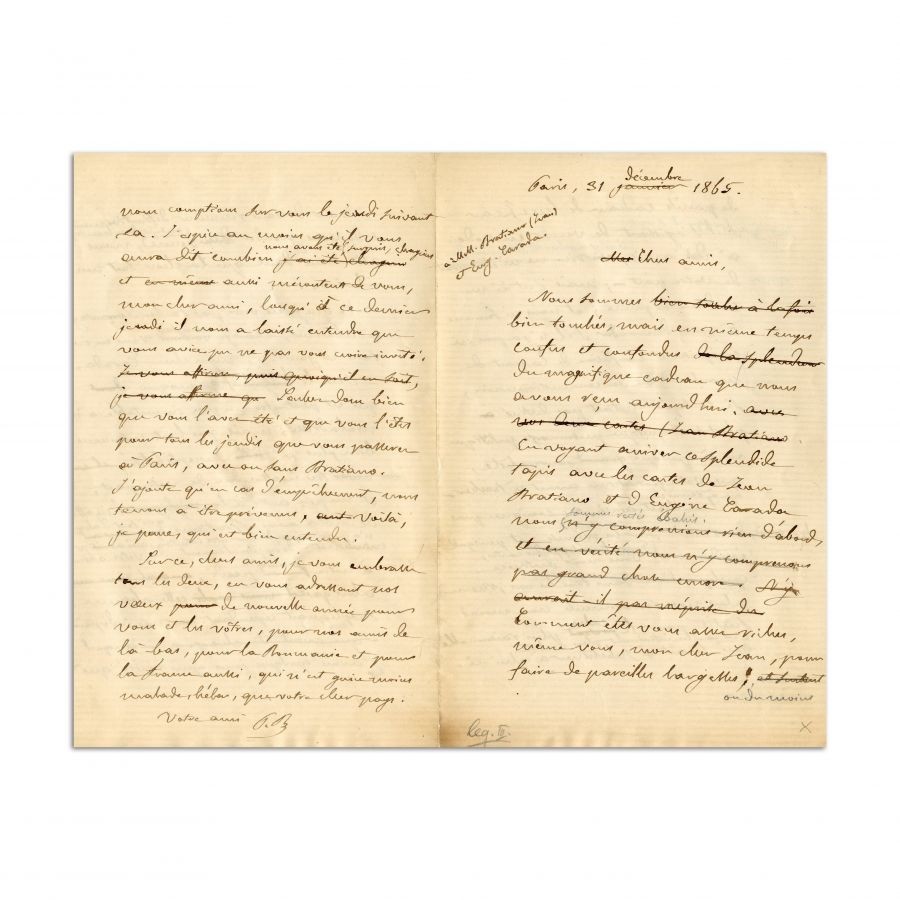 Paris, 31 janvier décembre 1865.
à M.M. Bratiano (Jean)
et Eug. Carada.
Mes Chers amis,
Nous sommes bien touchés à la fois
bien touchés, mais en même temps
confus et confondus de la splendeur
du magnifique cadeau que nous
avons reçu aujourd'hui. avec
vos deux cartes (Jean Bratiano
En voyant arriver ce splendide
tapis avec les cartes de Jean
Bratiano et d'Eugène Carada
sommes restés ébahis.
nous n'y comprenions rien d'abord,
et en vérité nous n'y comprenons
pas grand chose encore. N'y
aurait-il pas méprise du
Comment êtes vous assez riches,
même vous, mon cher Jean, pour
faire de pareilles largesses! et surtout
ou du moins
Leg. III.
X
nous comptions sur vous le jeudi suivant
J'espère au moins qu'il vous
nous avons été surpris, chagrins
aura dit combien j'ai été chagrin
et en même aussi mécontent de vous,
mon cher ami, lorsqu'il ce dernier
jeudi il nous a laissé entendre que
vous aviez pu ne pas vous croire invité.
Je vous affirme, puis quoiqu'il en soit,
je vous affirme que Sachez donc bien
que vous l'avez été et que vous l'êtes
pour tous les jeudis que vous passerez
à Paris, avec ou sans Bratiano.
J'ajoute qu'en cas d'empêchement, nous
tenons à être prévenus. Voilà,
je pense, qui est bien entendu.
Sur ce, chers amis, je vous embrasse
tous les deux, en vous adressant nos
vœux pour de nouvelle année pour
vous et les vôtres, pour nos amis de
là bas, pour la Roumanie et pour
la France aussi, qui n'est guère moins
malade, hélas, que votre cher pays.
Votre ami P.B